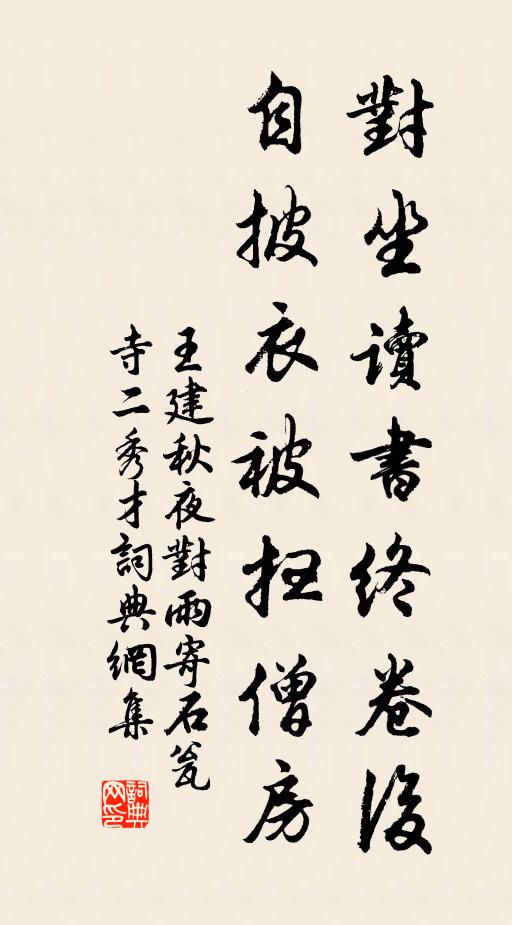 對坐讀書終卷後
自披衣被掃僧房
王建秋夜對雨寄石瓮
寺二秀才詞典網集
詞典网印